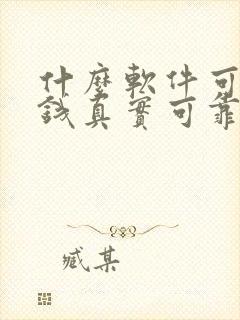 什麼軟件可
錢真實可靠
臧某